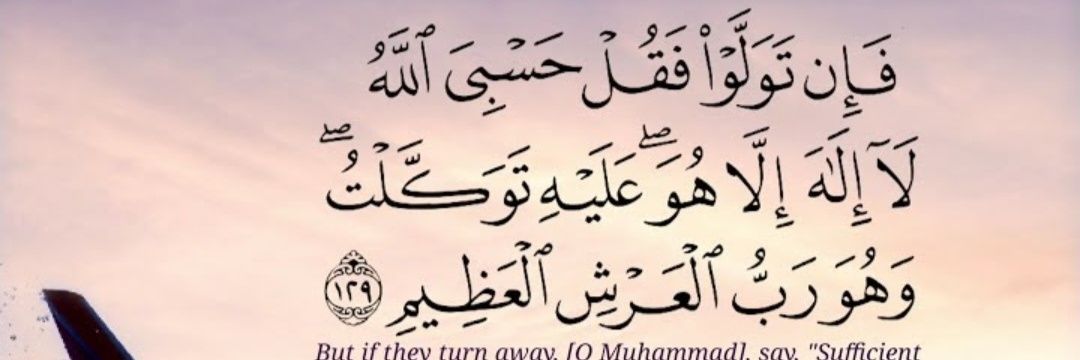 فَإِن تَوَلَّوْا۟ فَقُلْ حَسْبِىَ ٱللَّهُ
لَآ إِلَـٰهَ إِلَّا هُوَ ۖ عَلَيْهِ تَوَكَّلْتُ ۖ
وَهُوَ رَبُّ ٱلْعَرْشِ ٱلْعَظِيمِ ١٢٩
But if they turn away, [O Muhammad], say, "Sufficient